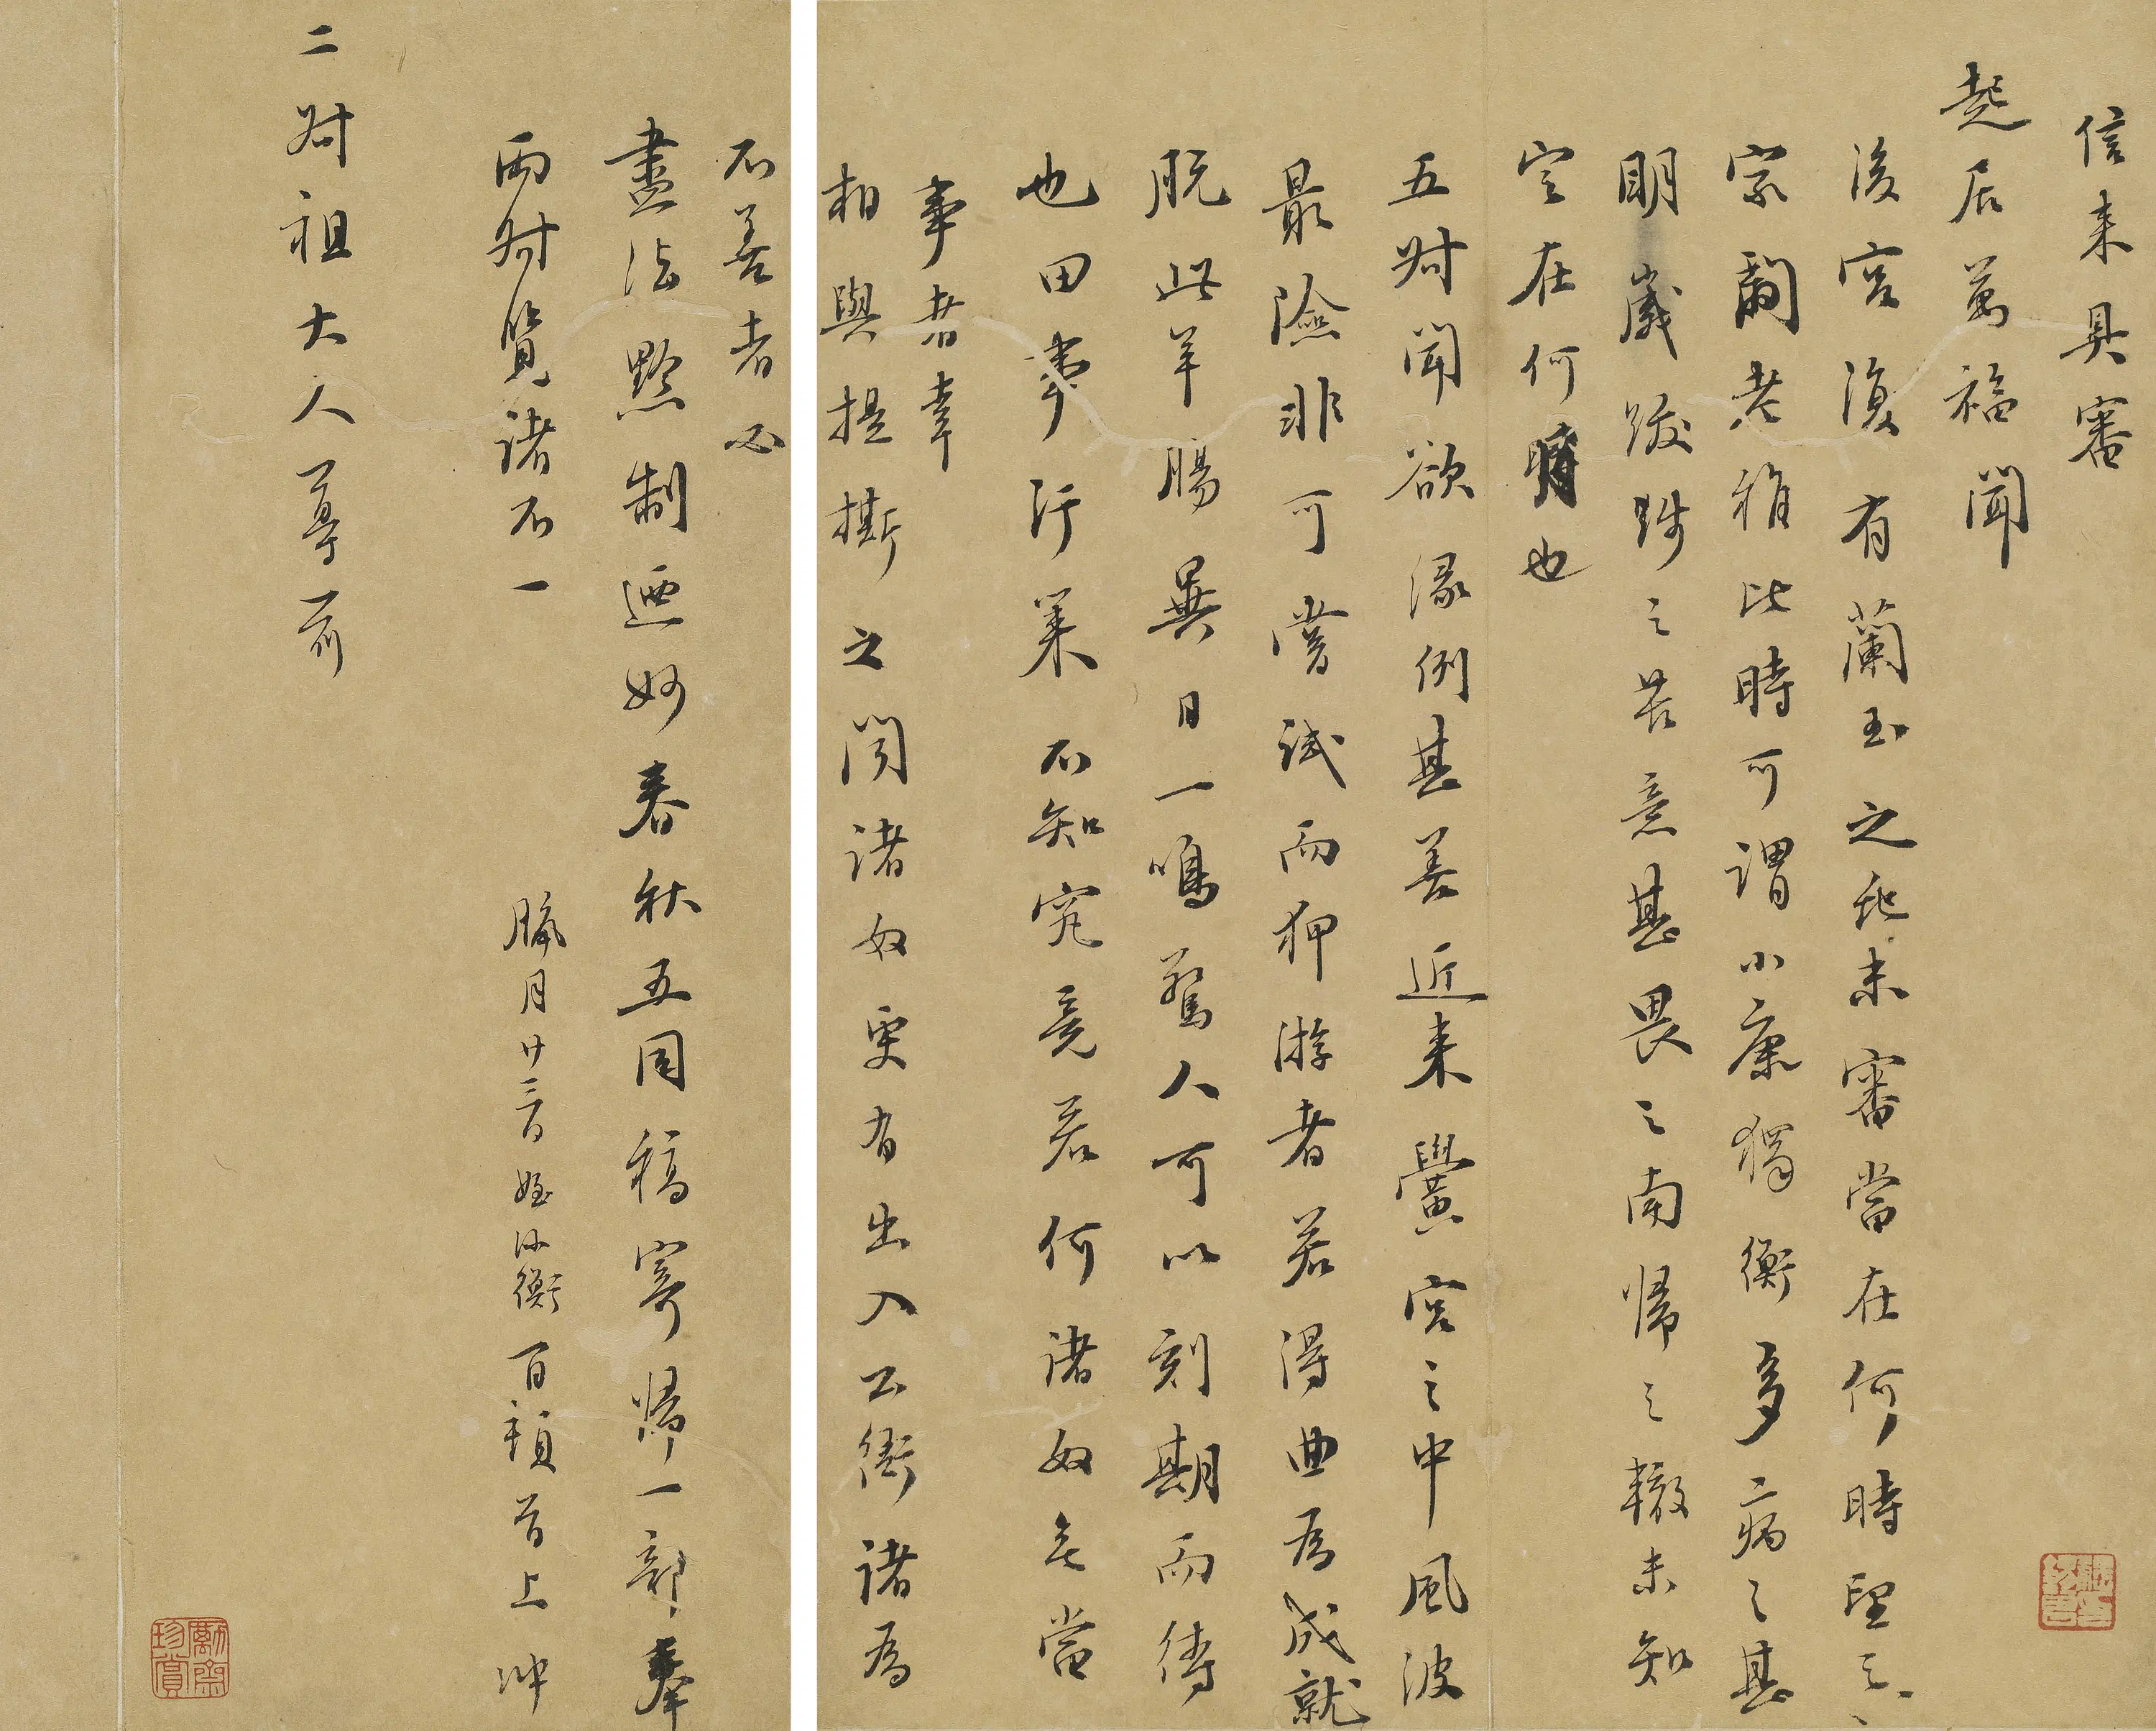 信来具審
起居萬福聞
後宮復有蘭玉之兆未審當在何時望之
宗嗣老稍比時可謂小康獨衡多病之甚
明歲跋踄之苦意甚畏之南歸之轍未知
定在何時也
五叔聞欲濠例甚善近来黌宮之中風波
最險非可嘗試而狎游者若得曲為成就
脱此羊腸異日一鳴驚人可以刻期而待
也田事污萊不知究竟若何諸奴無當
事者幸
相與提撕之聞諸奴更有出入公衙諸為
不善者必
盡法懲制迺妙春秋五同稿寄歸一部奉
兩叔覽諸不一
臈月廿三日姪 衡百頓首上冲
二叔祖大人尊前
勵齋珍賞